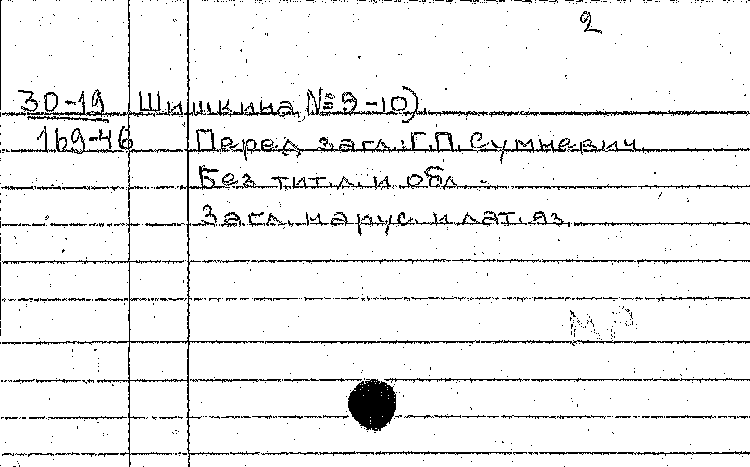 2
30-19 Шишкина, № 9-10).
169-46 Перед загл.: Г.П. Сумневич.
Без тит. л. и обл.
Загл. на рус. и лат. яз.